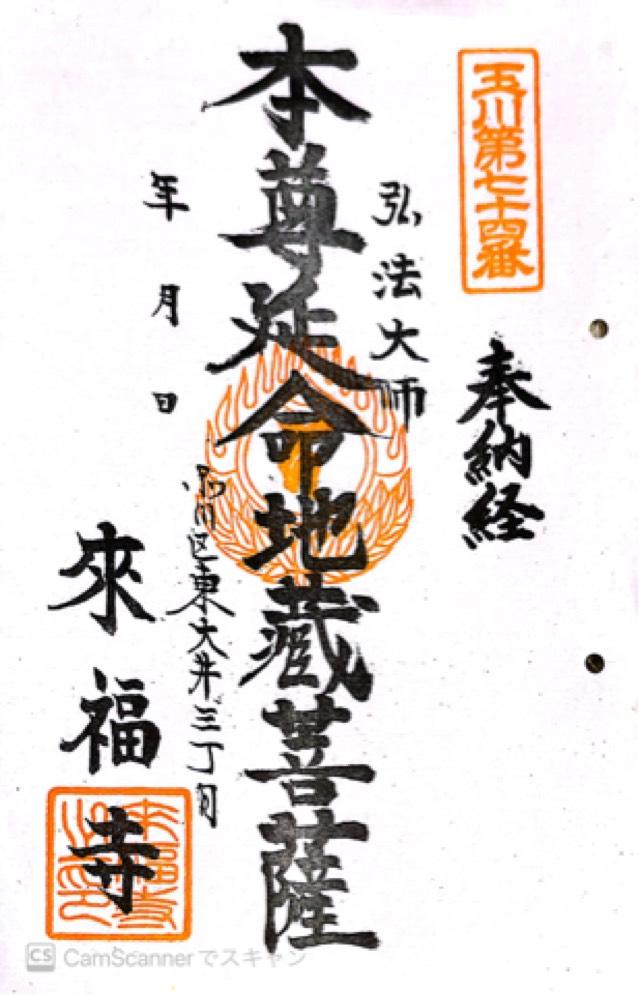 玉川第七十四番
奉納経
弘法大師
本尊延命地蔵菩薩
品川区東大井三丁目
年 月 日
來福寺
CS CamScannerでスキャン